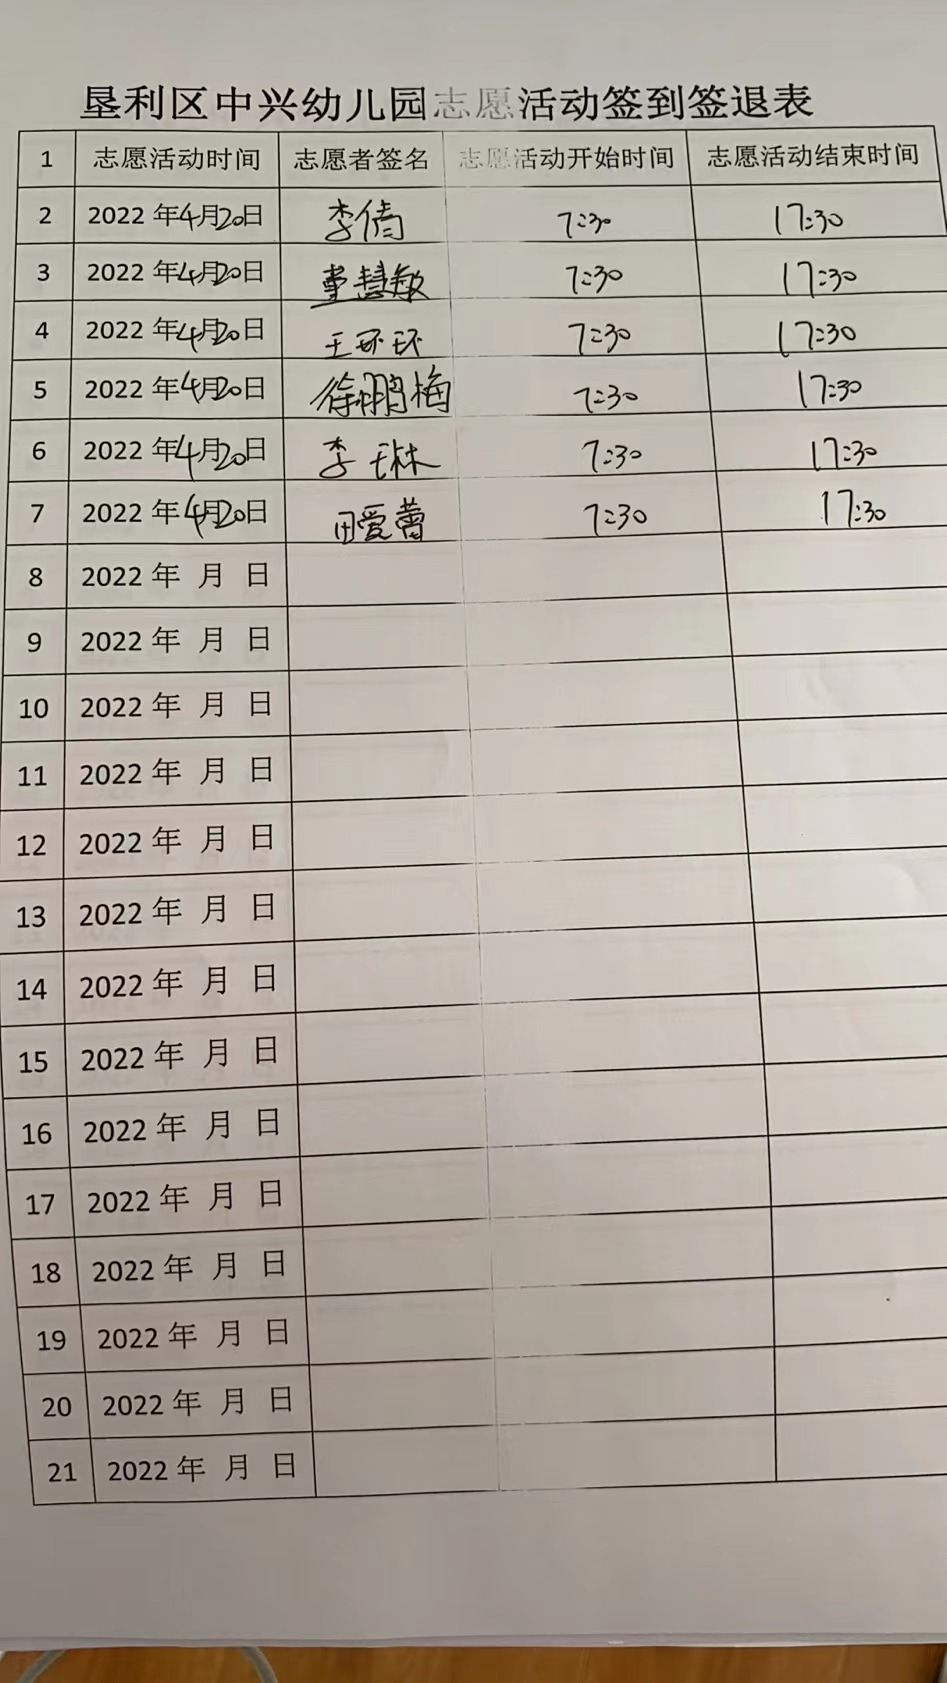 垦利区中兴幼儿园志愿活动签到签退表
1 志愿活动时间 志愿者签名 志愿活动开始时间 志愿活动结束时间
2 2022年4月20日 李倩 7:30 17:30
3 2022年4月20日 董慧敏 7:30 17:30
4 2022年4月20日 王环环 7:30 17:30
5 2022年4月20日 徐鹏梅 7:30 17:30
6 2022年4月20日 李琳 7:30 17:30
7 2022年4月20日 田爱蕾 7:30 17:30
8 2022年 月 日
9 2022年 月 日
10 2022年 月 日
11 2022年 月 日
12 2022年 月 日
13 2022年 月 日
14 2022年 月 日
15 2022年 月 日
16 2022年 月 日
17 2022年 月 日
18 2022年 月 日
19 2022年 月 日
20 2022年 月 日
21 2022年 月 日